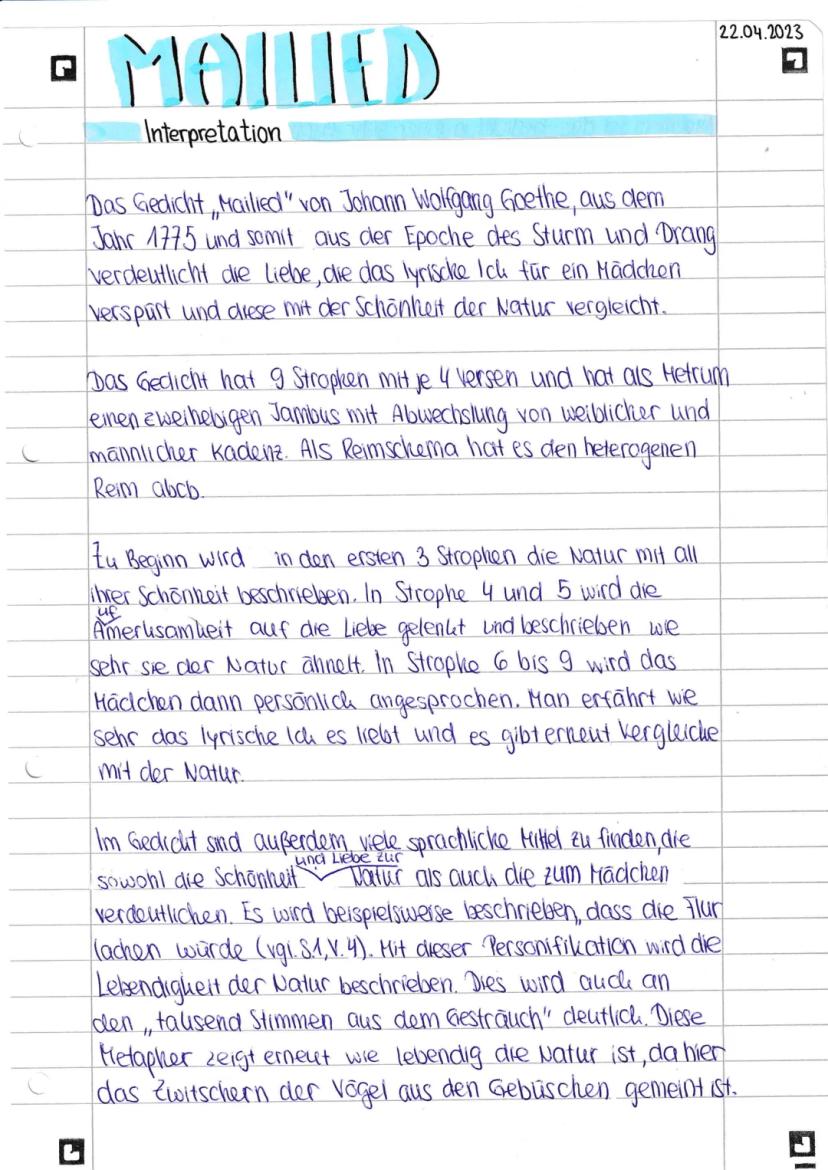 22.04.2023
MAILIED
Interpretation
Das Gedicht „Mailied" von Johann Wolfgang Goethe, aus dem
Jahr 1775 und somit aus der Epoche des Sturm und Drang
verdeutlicht die Liebe, die das lyrische Ich für ein Mädchen
verspürt und diese mit der Schönheit der Natur vergleicht.
Das Gedicht hat 9 Strophen mit je 4 Versen und hat als Metrum
einen zweihebigen Jambus mit Abwechslung von weiblicher und
männlicher Kadenz. Als Reimschema hat es den heterogenen
Reim abcb.
Zu Beginn wird in den ersten 3 Strophen die Natur mit all
ihrer Schönheit beschrieben. In Strophe 4 und 5 wird die
uf
Amerksamkeit auf die Liebe gelenkt und beschrieben wie
sehr sie der Natur ähnelt. In Strophe 6 bis 9 wird das
Mädchen dann persönlich angesprochen. Man erfährt wie
sehr das lyrische Ich es liebt und es gibt erneut Vergleiche
mit der Natur.
Im Gedicht sind außerdem viele sprachliche Mittel zu finden, die
und Liebe zur
sowohl die Schönheit Natur als auch die zum Mädchen
verdeutlichen. Es wird beispielsweise beschrieben, dass die Flur
lachen würde (vgl. S.1, V.4). Mit dieser Personifikation wird die
Lebendigkeit der Natur beschrieben. Dies wird auch an
den „tausend Stimmen aus dem Gesträuch" deutlich. Diese
Metapher zeigt erneut wie lebendig die Natur ist, da hier
das Zwitschern der Vögel aus den Gebüschen gemeint ist.